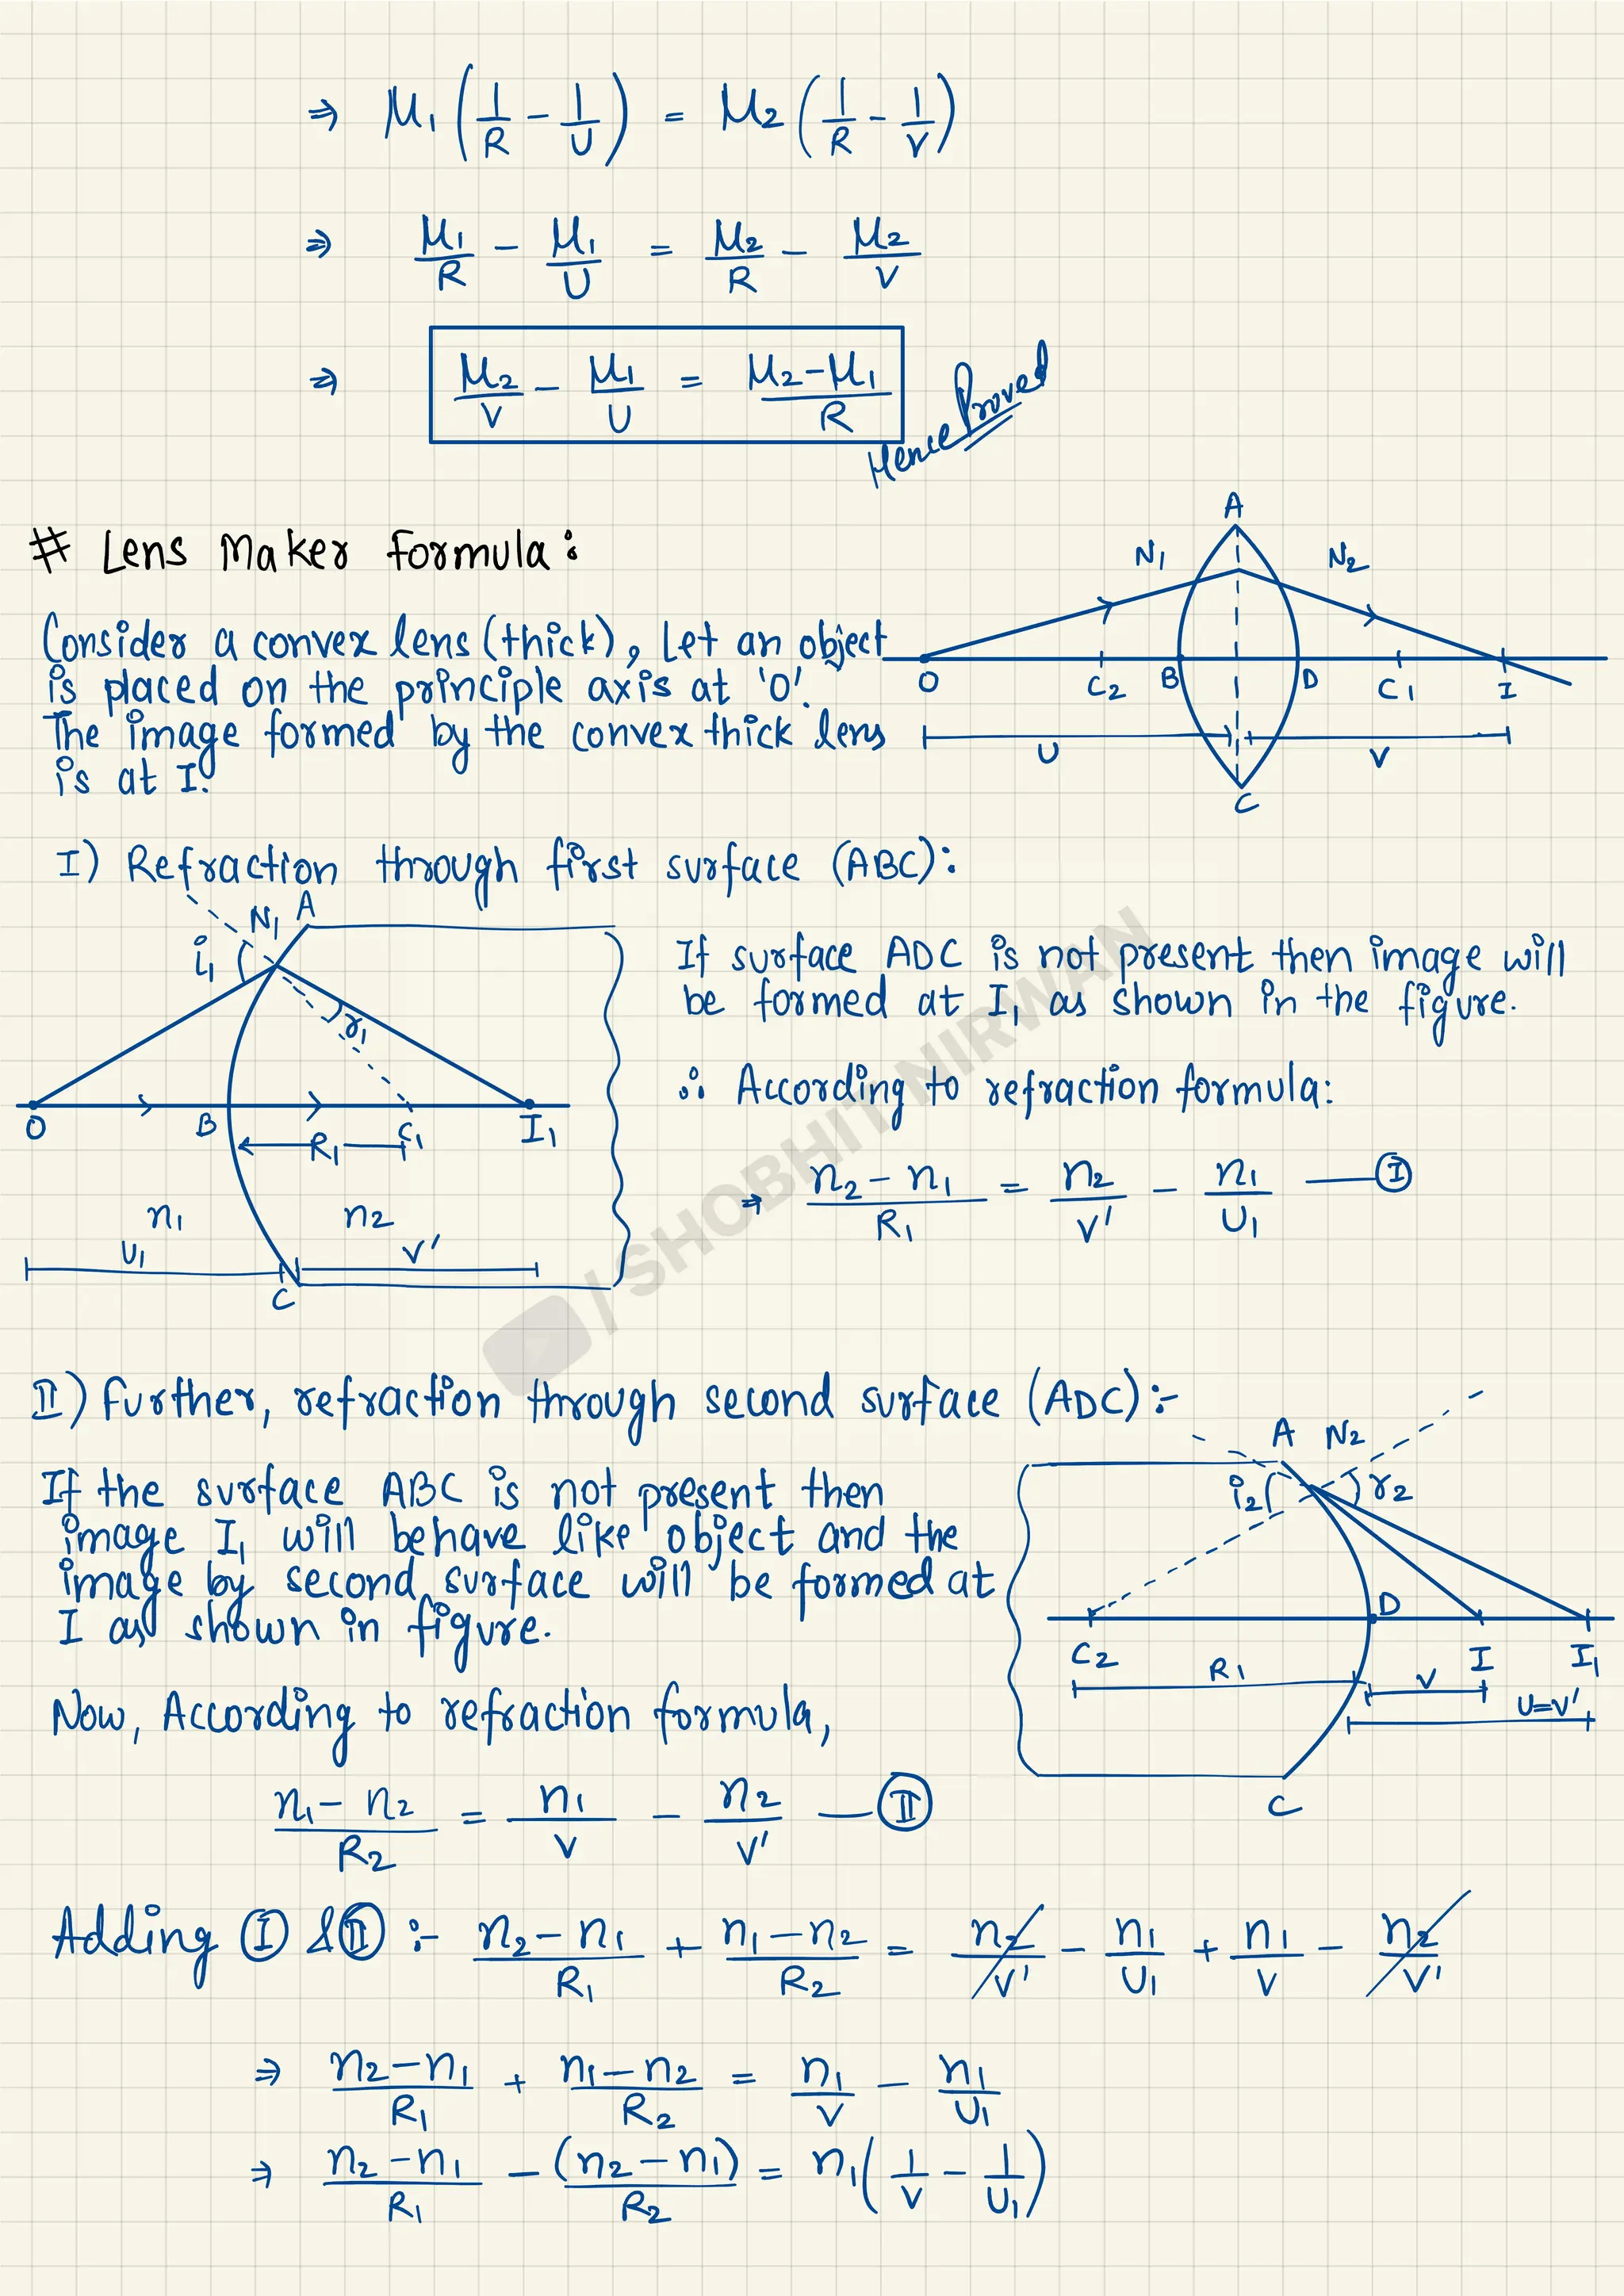 ⇒ μ₁ (1/R - 1/U) = μ₂ (1/R - 1/V)
⇒ μ₁/R - μ₁/U = μ₂/R - μ₂/V
⇒ μ₂/V - μ₁/U = (μ₂-μ₁)/R
Hence Proved
# Lens Maker Formula:
A
N₁ N₂
O C₂ B D C₁ I
U V
C
Consider a convex lens (thick), Let an object
is placed on the principle axis at 'O'.
The image formed by the convex thick lens
is at I.
I) Refraction through first surface (ABC):
N₁ A
i₁
r₁
O B C₁ I₁
R₁
n₁ n₂
U₁ V'
C
If surface ADC is not present then image will
be formed at I₁ as shown in the figure.
∴ According to refraction formula:
⇒ (n₂ - n₁)/R₁ = n₂/V' - n₁/U₁ — Ⓘ
/ SHOBHIT NIRWAN
II) Further, refraction through second surface (ADC):-
A N₂
i₂ r₂
D
C₂ I I₁
R₁ V
U=V'
C
If the surface ABC is not present then
image I₁ will behave like object and the
image by second surface will be formed at
I as shown in figure.
Now, According to refraction formula,
(n₁ - n₂)/R₂ = n₁/V - n₂/V' — (II)
Adding Ⓘ & (II) :- (n₂-n₁)/R₁ + (n₁-n₂)/R₂ = n₂/V' - n₁/U₁ + n₁/V - n₂/V'
⇒ (n₂-n₁)/R₁ + (n₁-n₂)/R₂ = n₁/V - n₁/U₁
⇒ (n₂-n₁)/R₁ - (n₂-n₁)/R₂ = n₁(1/V - 1/U₁)